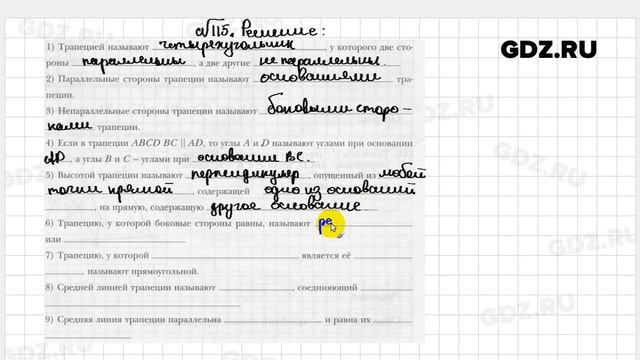 №115. Решение:
GDZ.RU
1) Трапецией называют четырехугольник, у которого две сто-
роны параллельны, а две другие не параллельны.
2) Параллельные стороны трапеции называют основаниями тра-
пеции.
3) Непараллельные стороны трапеции называют боковыми сторо-
нами трапеции.
4) Если в трапеции ABCD BC || AD, то углы A и D называют углами при основании
AD, а углы B и C – углами при основании BC.
5) Высотой трапеции называют перпендикуляр, опущенный из любой
точки прямой, содержащей одно из оснований
, на прямую, содержащую другое основание.
6) Трапецию, у которой боковые стороны равны, называют ре
или
7) Трапецию, у которой является её
, называют прямоугольной.
8) Средней линией трапеции называют , соединяющий
9) Средняя линия трапеции параллельна и равна их